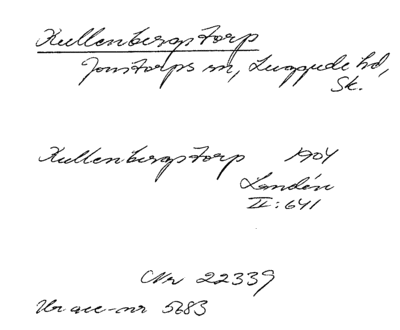 Kullenbergstorp
Jonstorps sn, Luggude hd,
Sk.
Kullenbergstorp 1904
Landén
II:641
Nr 22339
Ur acc-nr 5683